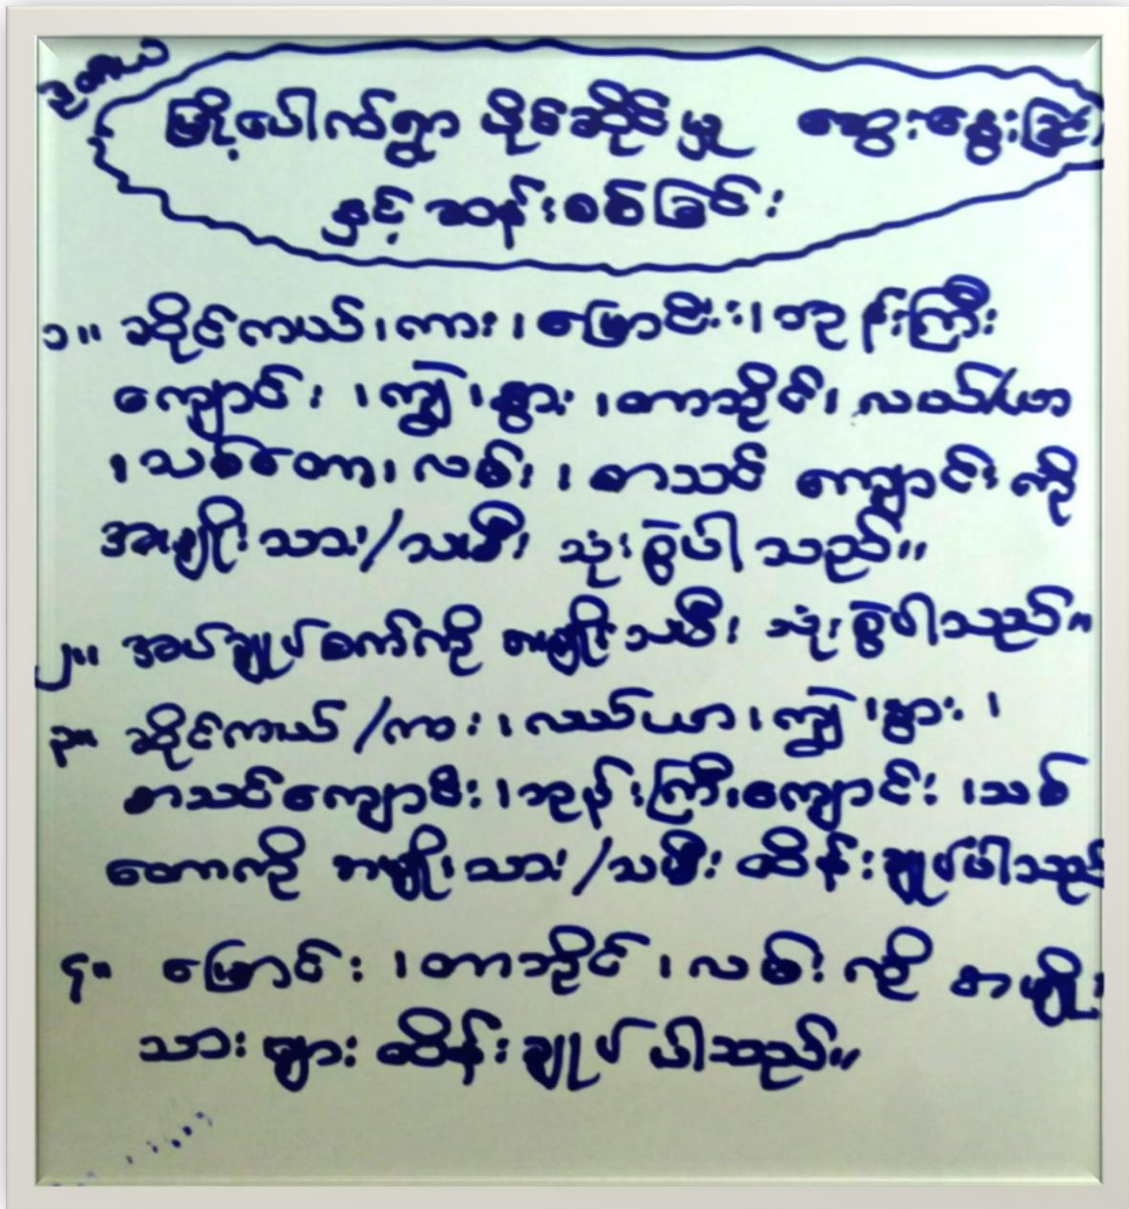 ဥတိယ
မြို့ပေါက်ရွာ ပိုင်ဆိုင်မှု ဆွေးနွေးခြင်း
နှင့် ဆန်းစစ်ခြင်း
၁။ ဆိုင်ကယ်၊ ကား၊ မြောင်း၊ ဘုန်းကြီး
ကျောင်း၊ ကျွဲ၊ နွား၊ တာဘိုင်၊ လယ်/ယာ
၊ သစ်တော၊ လမ်း၊ စာသင် ကျောင်း ကို
အမျိုးသား/သမီး သုံးစွဲပါသည်။
၂။ အပ်ချုပ်စက်ကို အမျိုးသမီး သုံးစွဲပါသည်။
၃။ ဆိုင်ကယ်/ကား၊ လယ်ယာ၊ ကျွဲ၊ နွား၊
စာသင်ကျောင်း၊ ဘုန်းကြီးကျောင်း၊ သစ်
တောကို အမျိုးသား/သမီး ထိန်းချုပ်ပါသည်
၄။ မြောင်း၊ တာဘိုင်၊ လမ်း ကို အမျိုး
သားများ ထိန်းချုပ်ပါသည်။